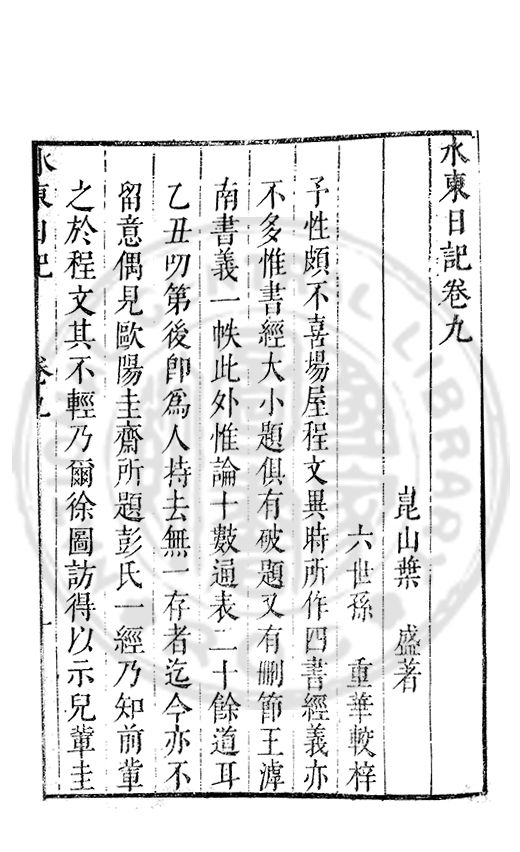 水東日記卷九
崑山葉　盛著
六世孫　重華較梓
予性頗不喜場屋程文異時所作四書經義亦
不多惟書經大小題俱有破題又有刪節王滹
南書義一帙此外惟論十數通表二十餘道耳
乙丑叨第後卽爲人持去無一存者迄今亦不
留意偶見歐陽圭齋所題彭氏一經乃知前輩
之於程文其不輕乃爾徐圖訪得以示兒輩圭
水東日記　卷九　一